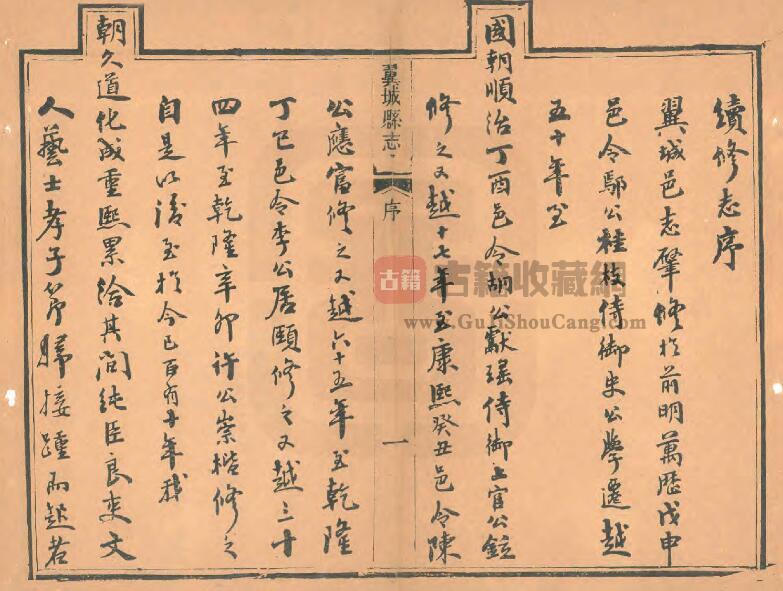 續修志序
翼城邑志肇修於前明萬歷戊申
邑令鄢公桂枝侍御史公學遷越
五十年至
國朝順治丁酉邑令胡公獻瑤侍御上官公鉝
修之又越十七年至康熙癸丑邑令陳
公應富修之又越六十五年至乾隆
丁巳邑令李公居頤修之又越三十
四年至乾隆辛卯許公崇楷修之
自是以後至於今已百有十年我
朝久道化成重熙累洽其間純臣良吏文
人藝士孝子節婦接踵而起若
翼城縣志
序
一
古籍
古籍收藏網
www.GuJiShouCang.com